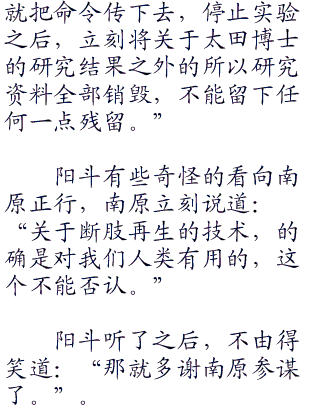 就把命令传下去，停止实验
之后，立刻将关于太田博士
的研究结果之外的所以研究
资料全部销毁，不能留下任
何一点残留。”
阳斗有些奇怪的看向南
原正行，南原立刻说道：
“关于断肢再生的技术，的
确是对我们人类有用的，这
个不能否认。”
阳斗听了之后，不由得
笑道：“那就多谢南原参谋
了。”。